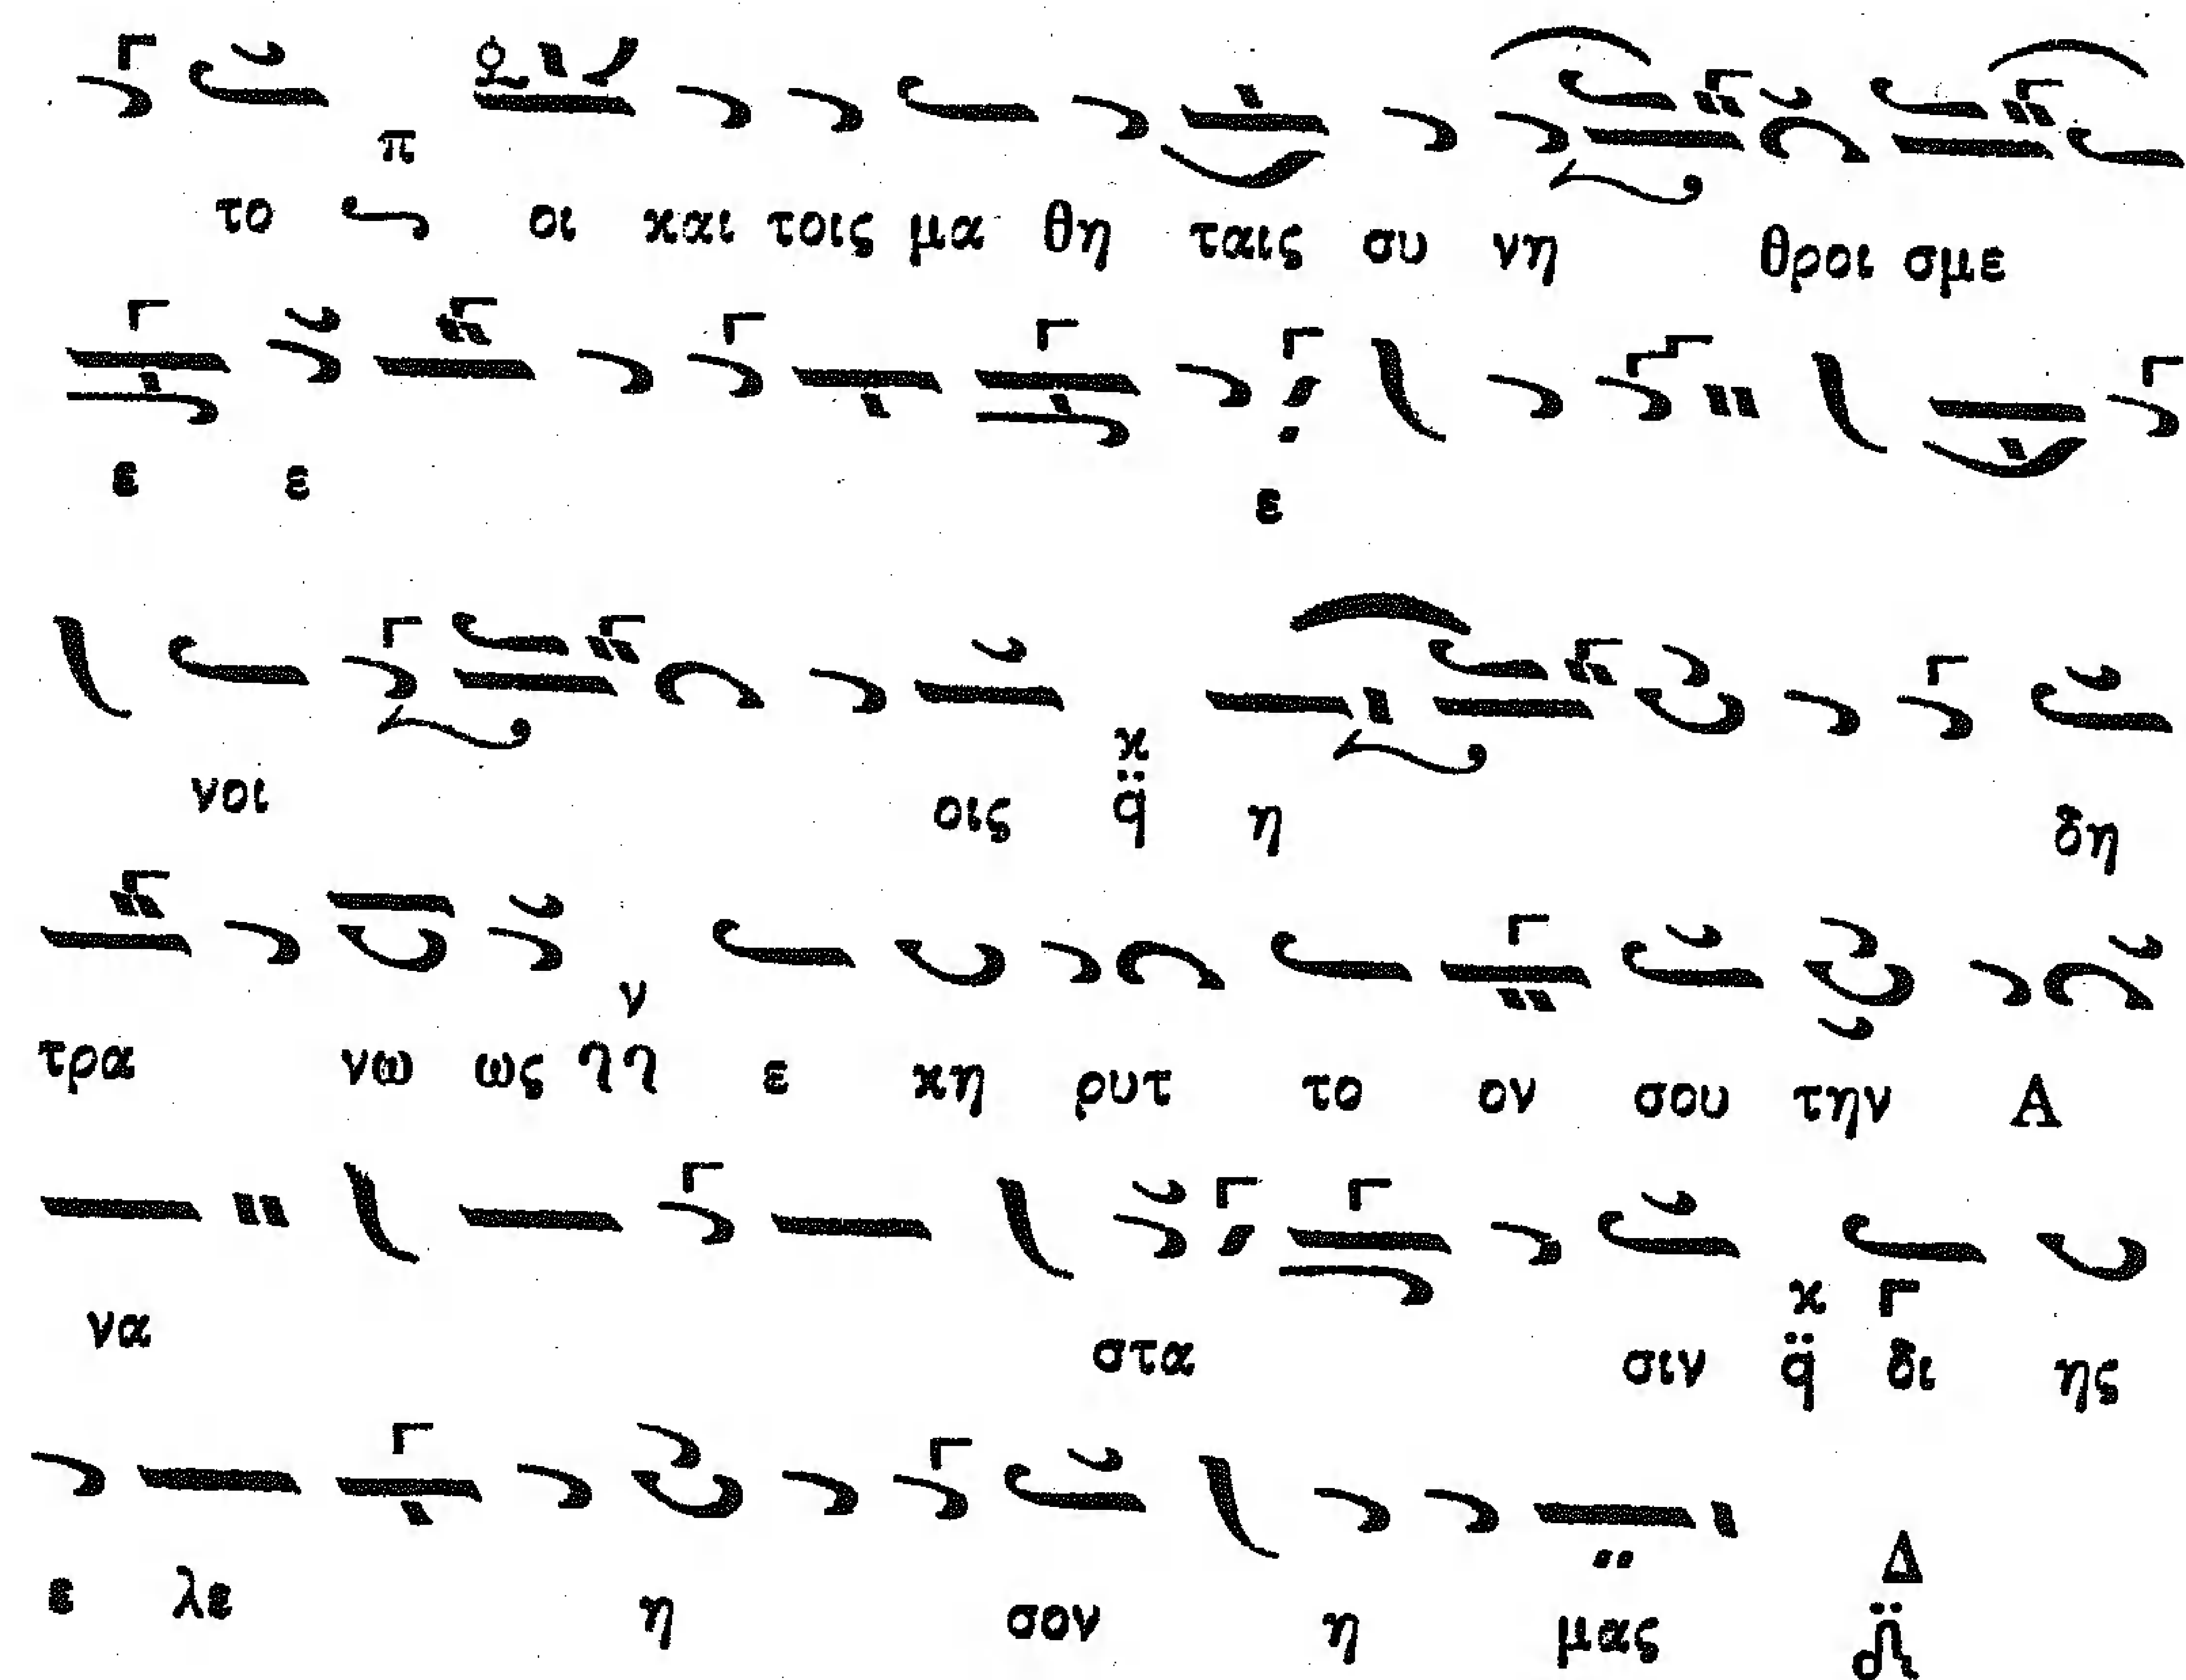 το π οι και τοις μα θη ταις συ νη θροι σμε
ε ε ε
νοι οις κ q̈ η δη
τρα νω ως ν ε κη ρυτ το ον σου την Α
να στα σιν κ q̈ δι ης
ε λε η σον η μας Δ